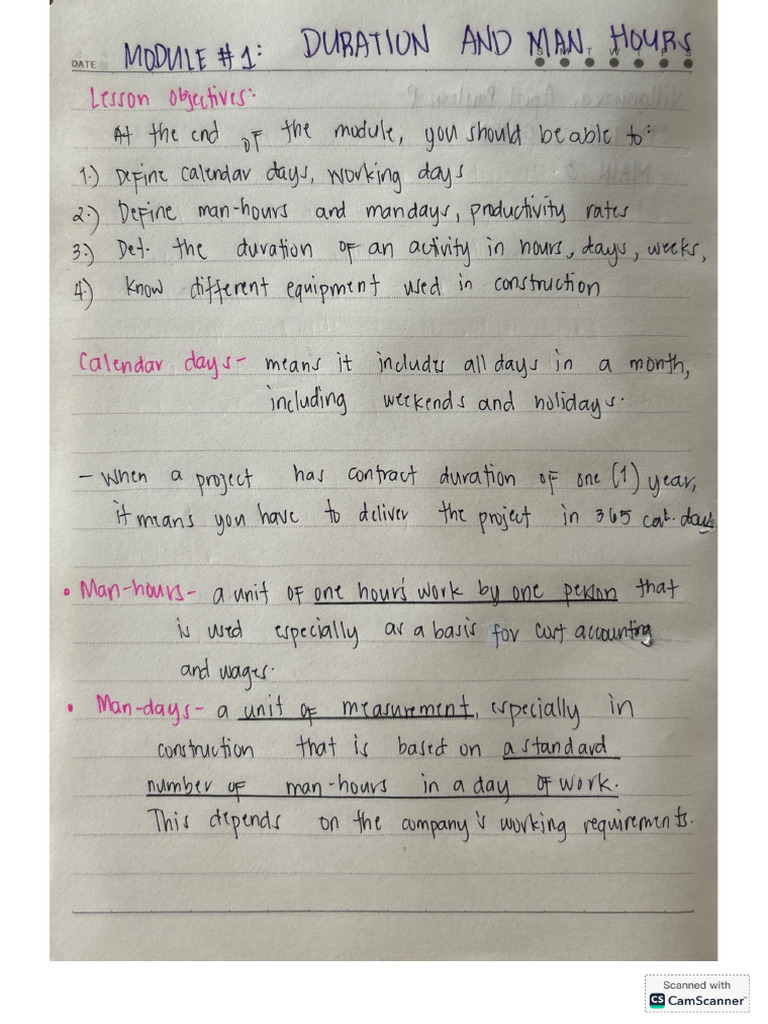 MODULE #1: DURATION AND MAN HOURS
DATE S M T W T F S
Lesson Objectives:
At the end of the module, you should be able to:
1.) Define calendar days, working days
2.) Define man-hours and mandays, productivity rates
3.) Det. the duration of an activity in hours, days, weeks,
4.) Know different equipment used in construction
Calendar days- means it includes all days in a month,
including weekends and holidays.
- When a project has contract duration of one (1) year,
it means you have to deliver the project in 365 cal. days
• Man-hours- a unit of one hour's work by one person that
is used especially as a basis for cost accounting
and wages.
• Man-days- a unit of measurement, especially in
construction that is based on a standard
number of man-hours in a day of work.
This depends on the company's working requirements.
Scanned with
CS CamScanner